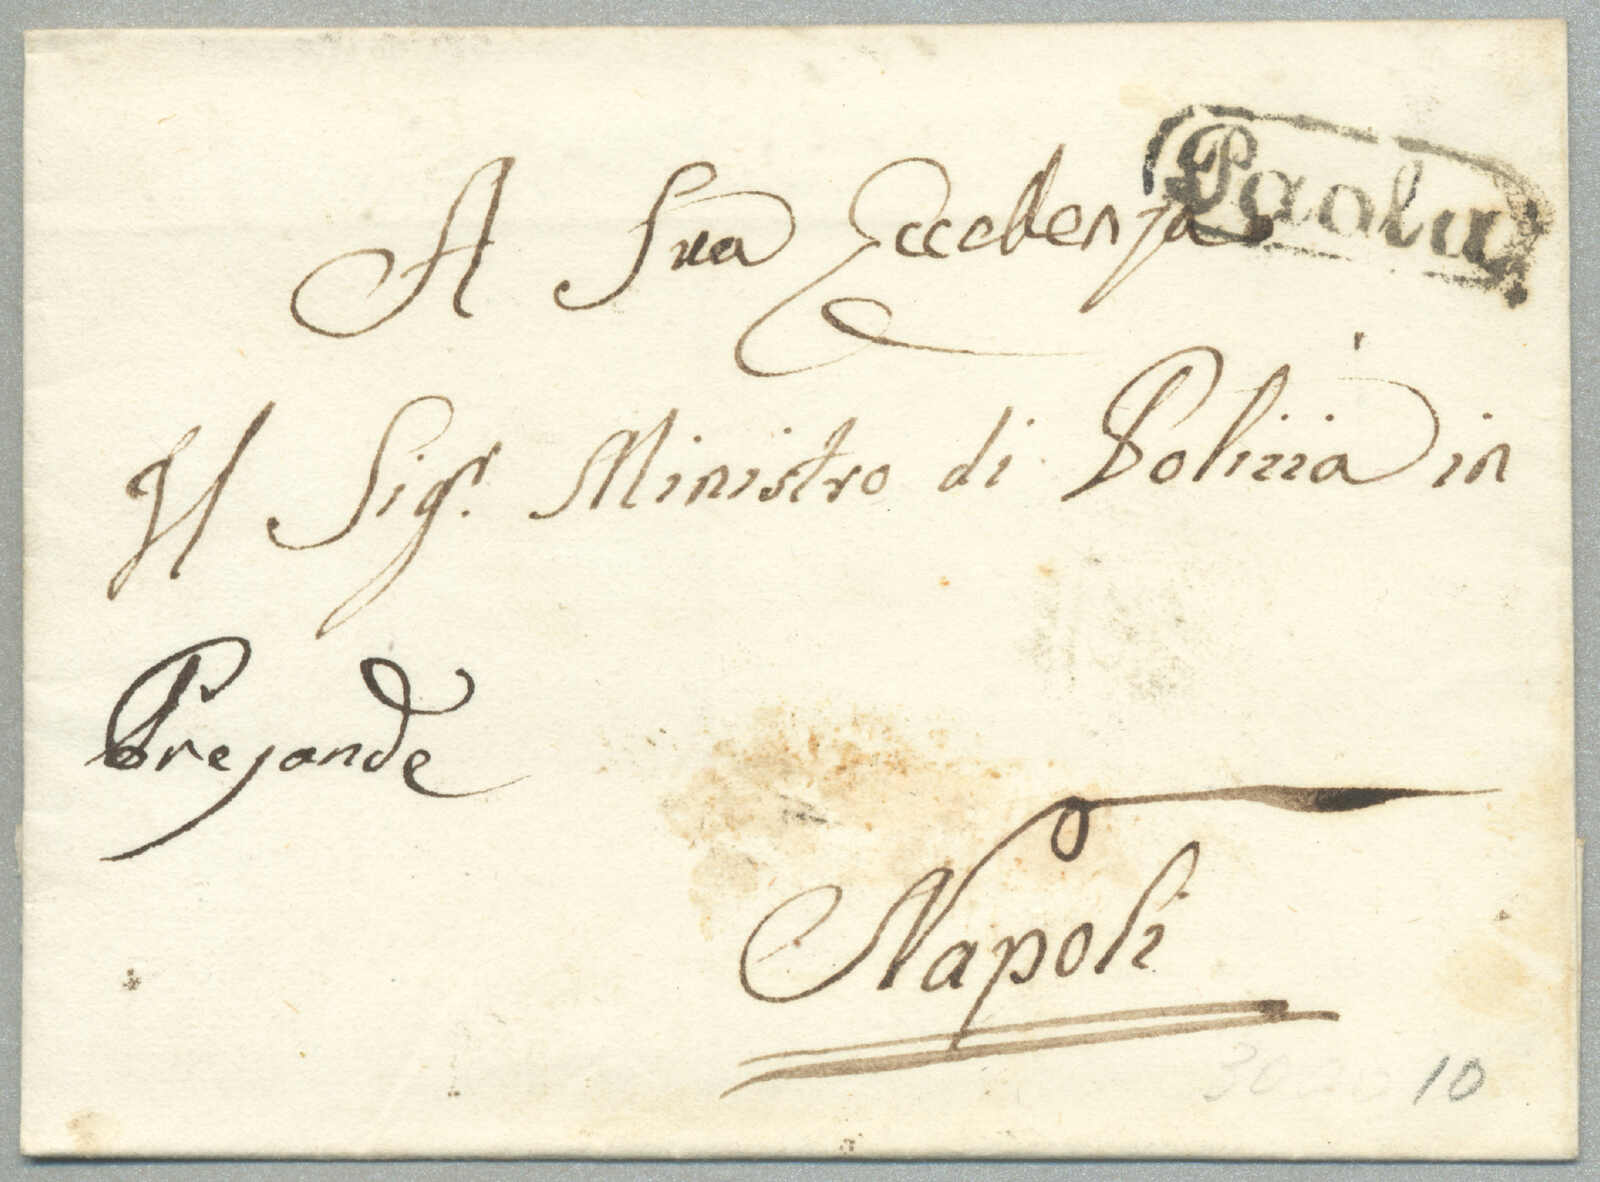 Paola
A Sua Eccellenza
Il Sigr. Ministro di Polizia in
Napoli
10